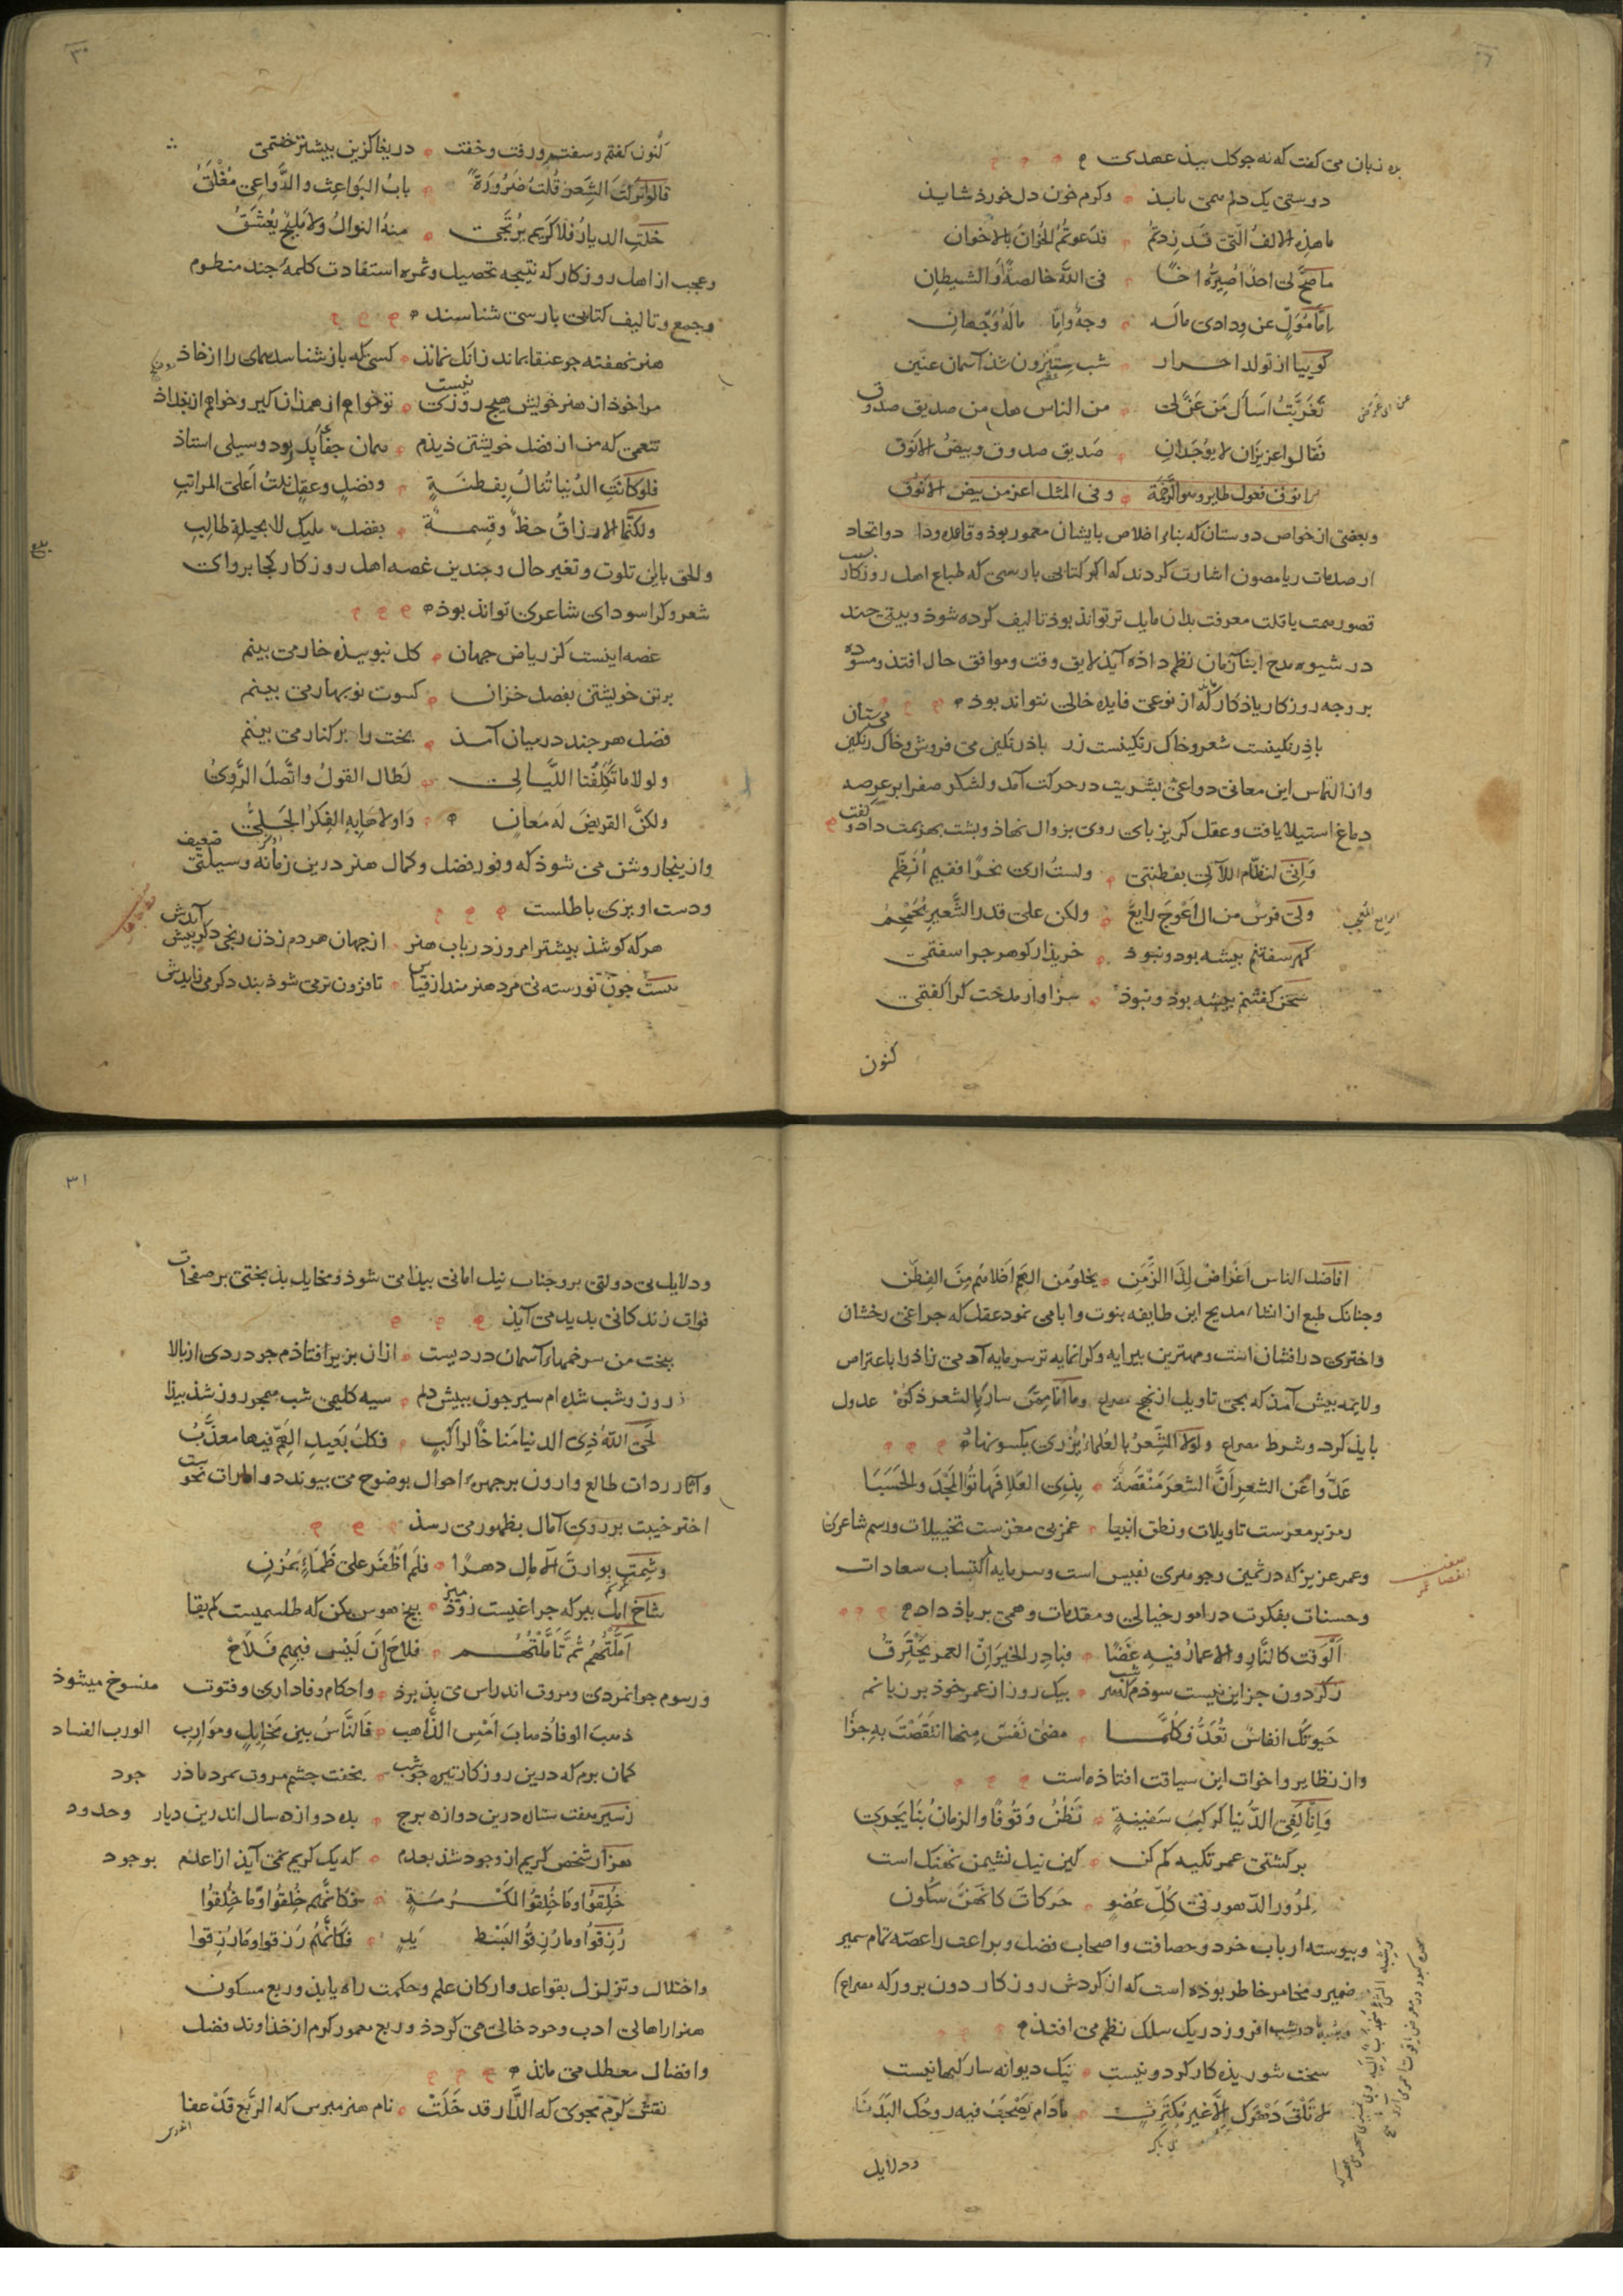 به زبان می کفت که نه جو کل بیذ عهدی
دوستی یک دلم همی باید وکرم خون دل خورد شاید
ما هذه الالف التی قد زدتم فدعوتم الخوان بالاخوان
ما صح لی احد اصیره اخا فی الله خالصة او الشیطان
اما مول عن ودادی ماله وجه واما ماله وجهان
کوییا از تولد احرار شب سترون شد آسمان عنین
تغربت اسأل من عن لی من الناس هل من صدیق صدوق
فقالوا عزیزان لا یوجدان صدیق صدوق وبیض الانوق
انوق فعول طایر وهو الرخمة وفی المثل اعز من بیض الانوق
وبعضی از خواص دوستان که بناء اخلاص بایشان معمور بوذ وقاعده وداد واتحاد
از صدمات ریا مصون اشارت کردند که اکر کتابی بارسی که طباع اهل روزکار بسبب
قصور همت یا قلت معرفت بدان مایل تر تواند بوذ تالیف کرده شوذ وبیتی چند
در شیوه مدح ابناء زمان نظم داذه آید لایق وقت وموافق حال افتذ ومسوده
بر وجه روزکار یاذکار ماند که از نوعی فایده خالی نتواند بوذ
باذ رنکینست شعر وخاک رنکینست زر باذ رنکین می فروش وخاک رنکین می ستان
واز التماس این معانی دواعی بشریت در حرکت آمد ولشکر صفرا بر عرصه
دماغ استیلا یافت وعقل کریز بای روی بزوال نهاذ وبشت بهزیمت داد وکفت
وانی لنظام اللآلی بفطنتی ولست اری نحرا ففیم انظم
ولی فرس من ال اعوج رایع ولکن علی قدر الشعیر یحمحم
کهر سفتنم بیشه بود ونبوذ خریذار کوهر چرا سفتمی
سخن کفتنم بیشه بوذ ونبوذ سزاوار مدحت کرا کفتمی
کنون
۳۰
کنون کفتم وسفتم ورفت وخفت دریغا کزین بیشتر خفتمی
قالوا ترکت الشعر قلت ضرورة باب البواعث والدواعی مغلق
خلت الدیار فلا کریم یرتجی منه النوال ولا ملیح یعشق
وعجب از اهل روزکار که نتیجه تحصیل وثمره استفادت کلمهٔ جند منظوم
وجمع وتالیف کتابی بارسی شناسند
هنر نهفته جو عنقا بماند زانک نماند کسی که باز شناسد همای را از خاذ
مرا خوذ از هنر خویش هیچ روزی نیست تو خواهم از همذان کیر وخواهم از بغداذ
تنعمی که من از فضل خویشتن دیذم همان جفاء پدر بود وسیلی استاذ
فلو کانت الدنیا تنال بفطنة وفضل وعقل نلت اعلی المراتب
ولکنما الارزاق حظ وقسمة بفضل ملیک لا بحیلة طالب
والحق باین تلوت وتغیر حال وجندین غصه اهل روزکار کجا بروای
شعر وکرا سودای شاعری تواند بوذ
غصه اینست کز ریاض جهان کل نبوییذه خار می بینم
بر تن خویشتن بفصل خزان کسوت نوبهار می بینم
فضل هر جند در میان آمذ بخت را بر کنار می بینم
ولولا ما تکلفنا اللیالی لطال القول واتصل الروی
ولکن القریض له معان واولاها به الفکر الجلی
وازینجا روشن می شوذ که وفور فضل وکمال هنر درین زمانه وسیلتی ضعیف
ودست اویزی باطلست
هر که کوشذ بیشتر امروز در باب هنر از جهان هر دم زذن رنجی دکر بیش آیدش
هست جون تورسته نی مرد هنرمند از قیاس تا فزون تر می شوذ بند دکر می زایدش
افاضل الناس اغراض لذا الزمن یخلو من الهم اخلاهم من الفطن
وجنانک طبع از انشاء مدیح این طایفه بنوت وابا می نمود عقل که جراغی رخشان
واختری درافشان است ومهترین بیرایه وکرانمایه تر سرمایه آدمی زاذ را باعتراض
ولایمه بیش آمذ که بحق تاویل از نهج مصراع وما انا ممن سار بالشعر ذکره عدول
بایذ کرد وشرط مصراع ولولا الشعر بالعلماء یزری بکسو نهاذ
عدوا عن الشعر ان الشعر منقصة بذی العلا فهاتوا المجد والحسبا
رمز بر معزست تاویلات ونطق انبیا غمز بی مغزست تخییلات ورسم شاعری
وعمر عزیز که در ثمین وجوهری نفیس است وسرمایه اکتساب سعادات
وحسنات بفکرت در امور خیالی ومقدمات وهمی بر باذ داد
الوقت کالنار والاعمار فیه غضا فبادر الخیر ان العمر یحترق
ز کردون جز این نیست سوذم که هر شب بیک روز از عمر خوذ برزیانم
حیوتک انفاس تعد فکلما مضی نفس منها انتقصت به جزا
واز نظایر واخوات این سیاقت افتاذه است
وانا لفی الدنیا کرکب سفینة نظن وقوفا والزمان بنا یجری
بر کشتی عمر تکیه کم کن کین نیل نشیمن نهنک است
لمرور الدهور فی کل عضو حرکات کانهن سکون
وبیوسته ارباب خرد وحصافت واصحاب فضل وبراعت را عصه تمام سمیر
ضمیر ومخامر خاطر بوذه است که از کردش روزکار دون برور که مصراع
وشبه با در شب افروز در یک سلک نظم می افتذ
سخت شوریذه کار کردونیست نیک دیوانه سار کیهانیست
لا تلق دهرک الا غیر مکترث مادام یصحب فیه روحک البدنا
ودلایل
۳۱
ودلایل بی دولتی بر وجنات نیل امانی بیذا می شوذ ومخایل بذبختی بر صفحات
فوات زندکانی بدید می آیذ
ببخت من سر خمهاء آسمان دردیست ازان بزیر افتاذم جو دردی از بالا
ز رون وشب شده ام سیر جون ببیش دلم سیه کلیمی شب همجو روز شذ بیذا
لحی الله ذی الدنیا مناخا لراکب فکل بعید الهم فیها معذب
وآثار ردات طالع وارون بر جهرهٔ احوال بوضوح می بیوندد وامارات نحوست
اختر خیبت بر روی آمال بظهور می رسذ
وشمت بوارق الآمال دهرا فلم اظفر علی ظماء بمزن
شاخ امل بزن که جراغیست زوذ میر بیخ هوس بکن که طلسمیست کم بقا
املتهم ثم تاملتهم فلاح لی ان لیس فیهم فلاح
ورسوم جوانمردی ومروت اندراس می بذیرذ واحکام وفاداری وفتوت منسوخ میشوذ
ذهب الوفا ذهاب امس الذاهب فالناس بین مخایل وموارب الورب الفساد
کمان برم که درین روزکار تیره جو شب بخفت جشم مروت بمرد ماذر جود
ز سیر هفت ستاره درین دوازده برج بده دوازده سال اندرین دیار وحدود
هزار شخص کریم از وجود شذ بعدم که یک کریم نمی آید از عدم بوجود
خلقوا وما خلقوا لمکرمة فکانهم خلقوا وما خلقوا
رزقوا وما رزقوا البسط ید فکانهم رزقوا وما رزقوا
واختلال وتزلزل بقواعد وارکان علم وحکمت راه یابذ وربع مسکون
هنر از اهالی ادب وخرد خالی می کردذ وربع معمور کرم از خذاوند فضل
وافضال معطل می ماند
نقش کرم مجوی که الدار قد خلت نام هنر مبرس که الربع قد عفا